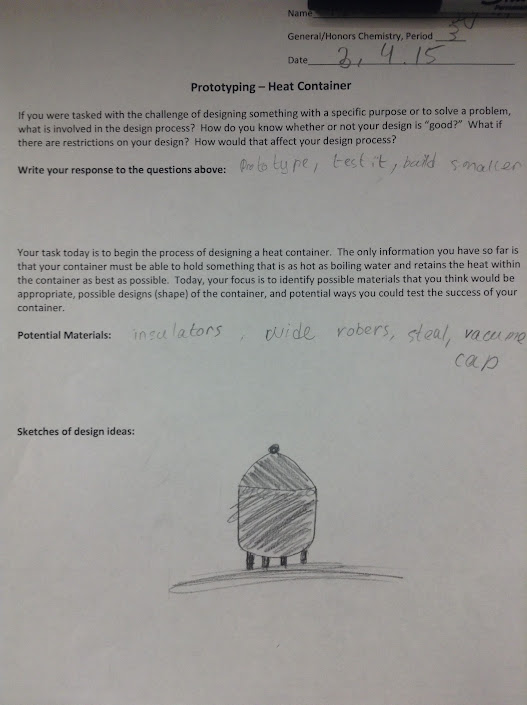 Name
General/Honors Chemistry, Period 3
Date 3, 4. 15
Prototyping – Heat Container
If you were tasked with the challenge of designing something with a specific purpose or to solve a problem,
what is involved in the design process? How do you know whether or not your design is “good?” What if
there are restrictions on your design? How would that affect your design process?
Write your response to the questions above: Prototype, test it, build smaller
Your task today is to begin the process of designing a heat container. The only information you have so far is
that your container must be able to hold something that is as hot as boiling water and retains the heat within
the container as best as possible. Today, your focus is to identify possible materials that you think would be
appropriate, possible designs (shape) of the container, and potential ways you could test the success of your
container.
Potential Materials: insulators, robers, steal, vacume
cap
Sketches of design ideas: